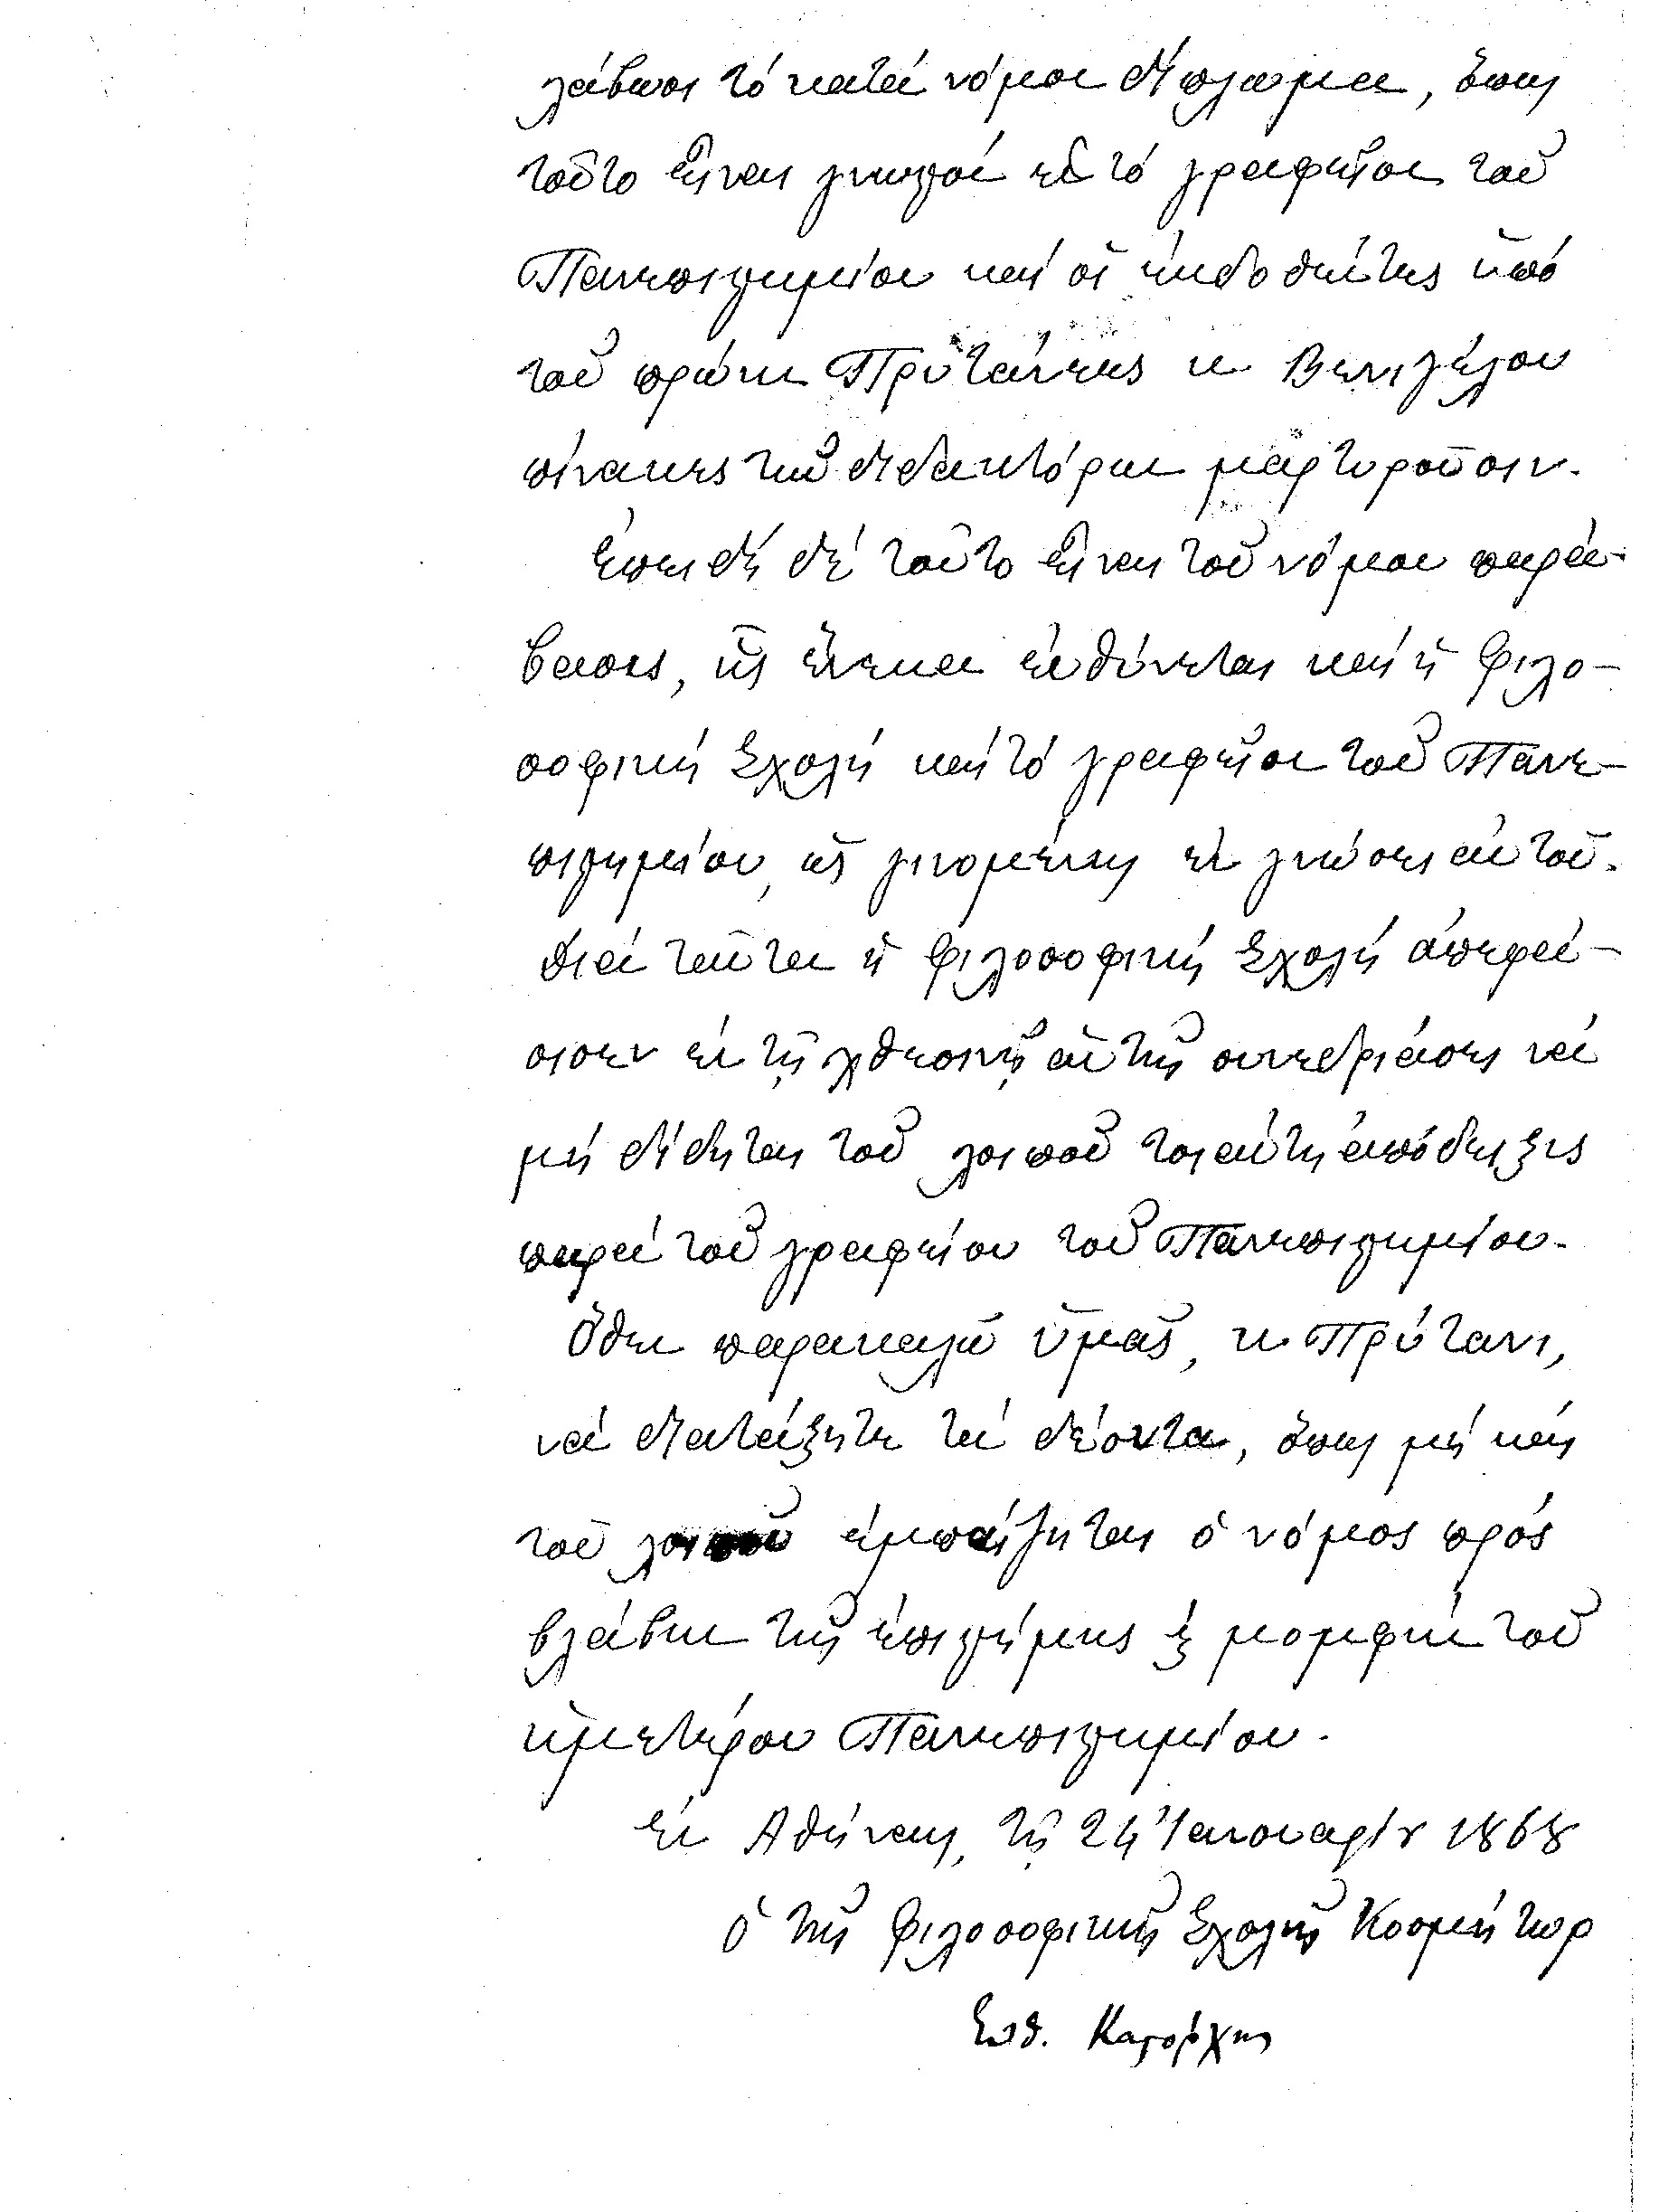 λάβωσι τὸ κατὰ νόμον δίπλωμα, ὅπως
τοῦτο εἶναι γνωστὸν εἰς τὸ γραφεῖον τοῦ
Πανεπιστημίου καὶ οἱ ἐκδοθέντες ὑπὸ
τοῦ πρώην Πρυτάνεως κ. Βενιζέλου
πίνακες τῶν διδακτόρων μαρτυροῦσιν.
Ἐπειδὴ δὲ τοῦτο εἶναι τοῦ νόμου παρά-
βασις, ἧς ἕνεκα εὐθύνεται καὶ ἡ Φιλο-
σοφικὴ Σχολὴ καὶ τὸ γραφεῖον τοῦ Πανε-
πιστημίου, ὡς γινομένης ἐν γνώσει αὐτοῦ.
διὰ ταῦτα ἡ Φιλοσοφικὴ Σχολὴ ἀπεφά-
σισεν ἐν τῇ χθεσινῇ αὑτῆς συνεδριάσει νὰ
μὴ δίδηται τοῦ λοιποῦ τοιαύτη ἀπόδειξις
παρὰ τοῦ γραφείου τοῦ Πανεπιστημίου.
Ὅθεν παρακαλῶ ὑμᾶς, κ. Πρύτανι,
νὰ διατάξητε τὰ δέοντα, ὅπως μὴ καὶ
τοῦ λοιποῦ ἐμπαίζηται ὁ νόμος πρὸς
βλάβην τῆς ἐπιστήμης ἢ μομφὴν τοῦ
ἡμετέρου Πανεπιστημίου.
Ἐν Ἀθήναις, τῇ 24 Ἰανουαρίου 1868
ὁ τῆς Φιλοσοφικῆς Σχολῆς Κοσμήτωρ
Εὐθ. Καστόρχης